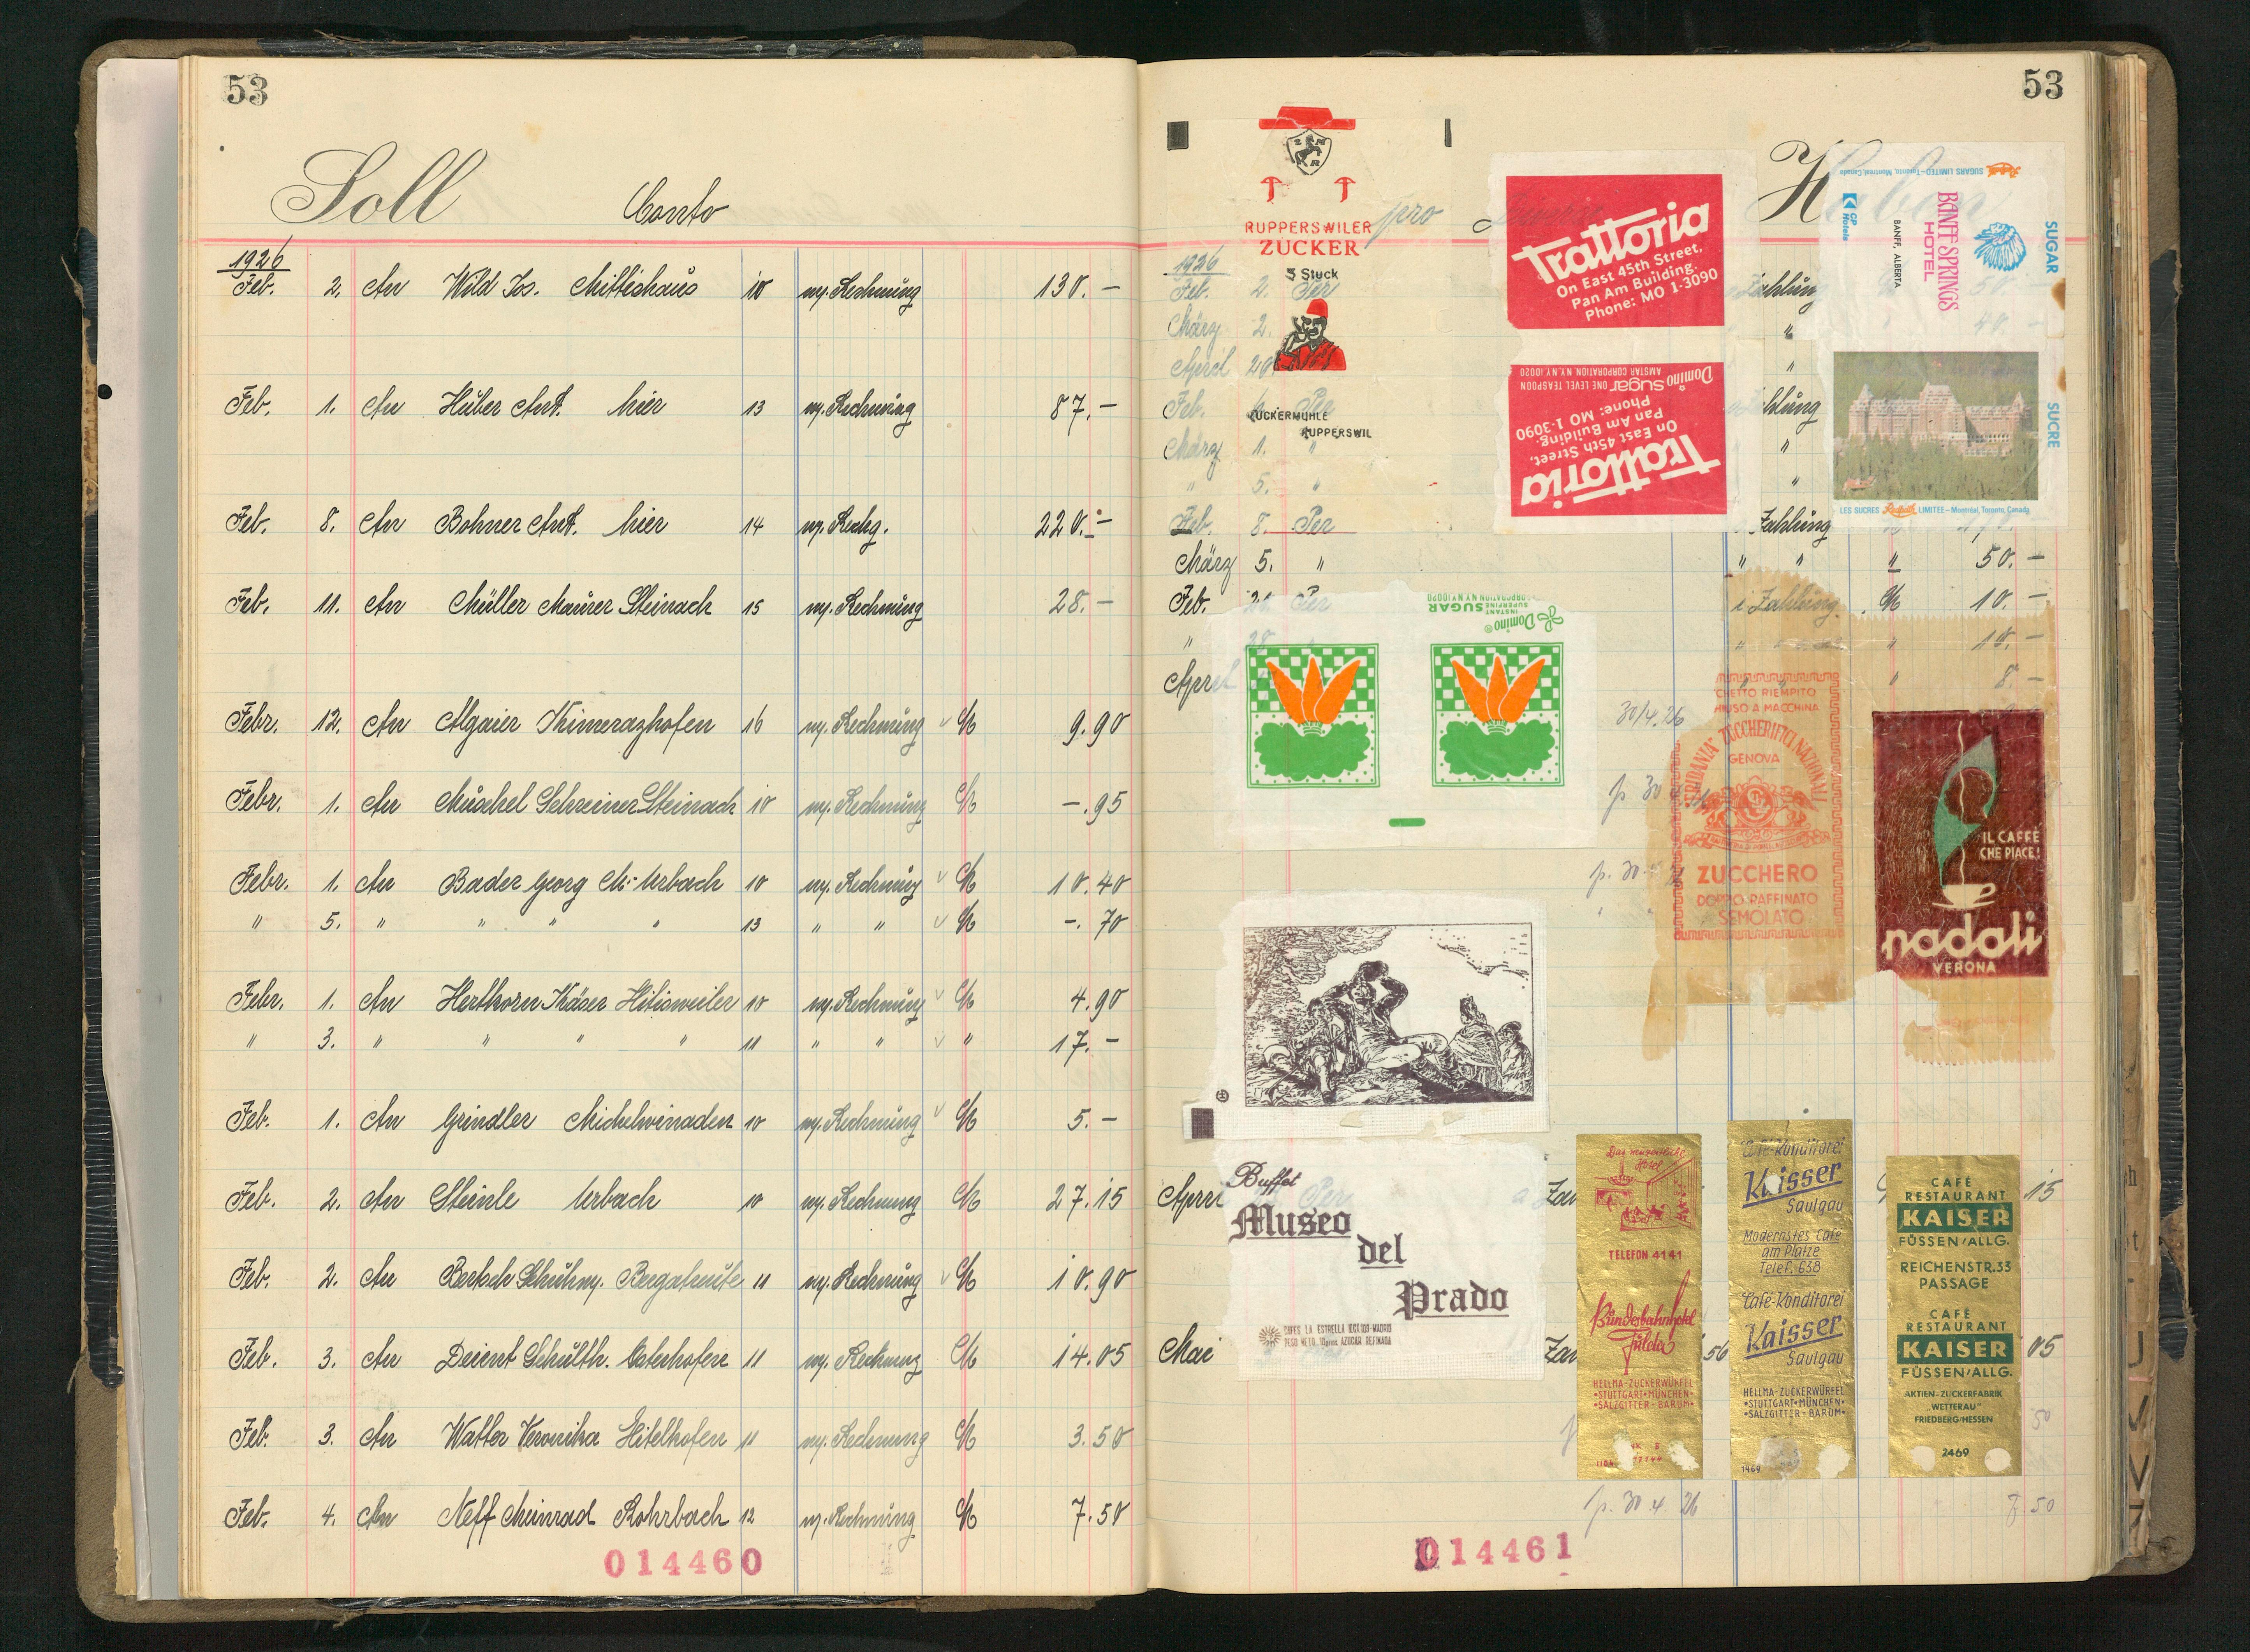 53
Soll
Conto
1926
Feb. 2. An Wild Jos. 10 my. Rechnung 130.—
Feb. 1. An Huber Ant. hier 13 my. Rechnung 87.—
Feb. 8. An Bohner Ant. hier 14 my. Rechg. 220.—
Feb. 11. An Müller Maurer Steinach 15 my. Rechnung 28.—
Febr. 12. An Algaier 16 my. Rechnung 9.90
Febr. 1. An Muschel Schreiner Steinach 10 my. Rechnung —.95
Febr. 1. An Bader Georg Urbach 10 my. Rechnung 10.40
" 5. " " " " 13 " " —.70
Febr. 1. An Herthorn Käser 10 my. Rechnung 4.90
" 3. " " " " 11 " " " 17.—
Feb. 1. An Grindler Michelwinnaden 10 my. Rechnung 5.—
Feb. 2. An Steinle Urbach 10 my. Rechnung 27.15
Feb. 2. An 11 my. Rechnung 10.90
Feb. 3. An Osterhofen 11 my. Rechnung 14.05
Feb. 3. An Veronika 11 my. Rechnung 3.50
Feb. 4. An Neff Meinrad Rohrbach 12 my. Rechnung 7.50
014460
53
pro
Haben
1926
Feb. 2. Per
März 2.
April
Feb. Per
März 1. "
" 5. "
Feb. 8. Per
März 5. "
Feb. Per
" 28
April
April Per
Mai
Zahlung
"
"
"
"
Zahlung
" " " 50.—
Zahlung. 10.—
" " 10.—
" 8.—
30/4.26
p. 30
p. 30
15
56
05
50
p. 30 4 26
7.50
014461
RUPPERSWILER
ZUCKER
3 Stuck
ZUCKERMÜHLE
RUPPERSWIL
Trattoria
On East 45th Street,
Pan Am Building.
Phone: MO 1-3090
Trattoria
On East 45th Street,
Pan Am Building.
Phone: MO 1-3090
Domino Sugar ONE LEVEL TEASPOON
AMSTAR CORPORATION N.Y. N.Y. 10020
SUGARS LIMITED—Toronto, Montreal, Canada
CP Hotels
BANFF SPRINGS
HOTEL
BANFF, ALBERTA
SUGAR
SUCRE
LES SUCRES Redpath LIMITEE—Montréal, Toronto, Canada
Domino®
INSTANT
SUPERFINE SUGAR
CORPORATION N.Y. N.Y. 10020
CHETTO RIEMPITO
CHIUSO A MACCHINA
"ERIDANIA" ZUCCHERIFICI NAZIONALI
GENOVA
ZUCCHERO
DOPPIO RAFFINATO
SEMOLATO
IL CAFFÈ
CHE PIACE!
nadali
VERONA
Buffet
Museo
del
Prado
CAFES LA ESTRELLA MADRID
PESO NETO. AZUCAR REFINADA
Das neuzeitliche
Hotel
TELEFON 4141
Bundesbahnhotel
Fulda
HELLMA-ZUCKERWÜRFEL
•STUTTGART•MÜNCHEN•
•SALZGITTER-BARUM•
Café-Konditorei
Kaisser
Saulgau
Modernstes Café
am Platze
Telef. 638
Café-Konditorei
Kaisser
Saulgau
HELLMA-ZUCKERWÜRFEL
•STUTTGART•MÜNCHEN•
•SALZGITTER-BARUM•
1469
CAFÉ
RESTAURANT
KAISER
FÜSSEN/ALLG.
REICHENSTR.33
PASSAGE
CAFÉ
RESTAURANT
KAISER
FÜSSEN/ALLG.
AKTIEN-ZUCKERFABRIK
„WETTERAU"
FRIEDBERG/HESSEN
2469